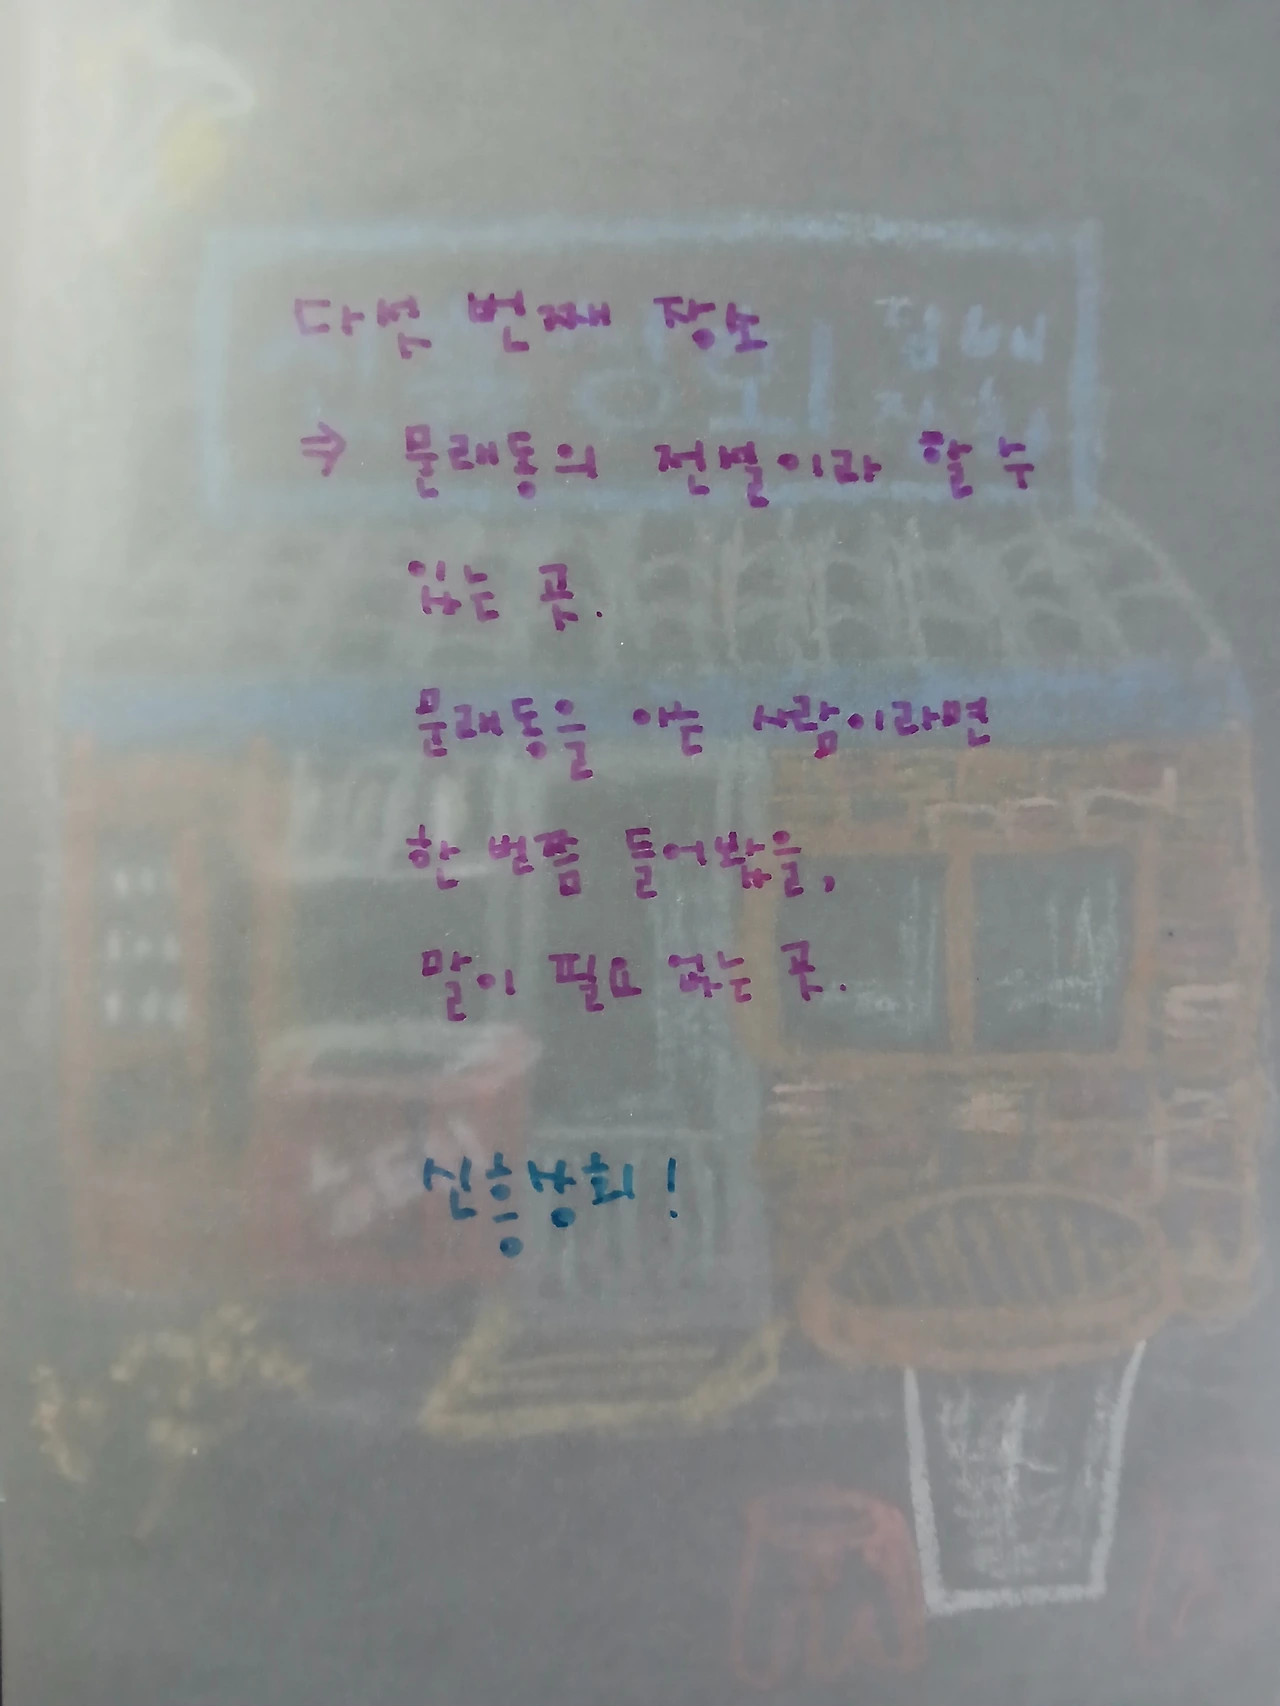 다섯 번째 장소
⇒ 문래동의 전설이라 할 수
있는 곳.
문래동을 아는 사람이라면
한 번쯤 들어봤을,
말이 필요 없는 곳.
신흥상회!